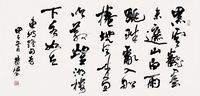 黑雲翻墨
未遮山白雨
跳珠亂入船
卷地風來忽
吹散望湖樓
下水如天